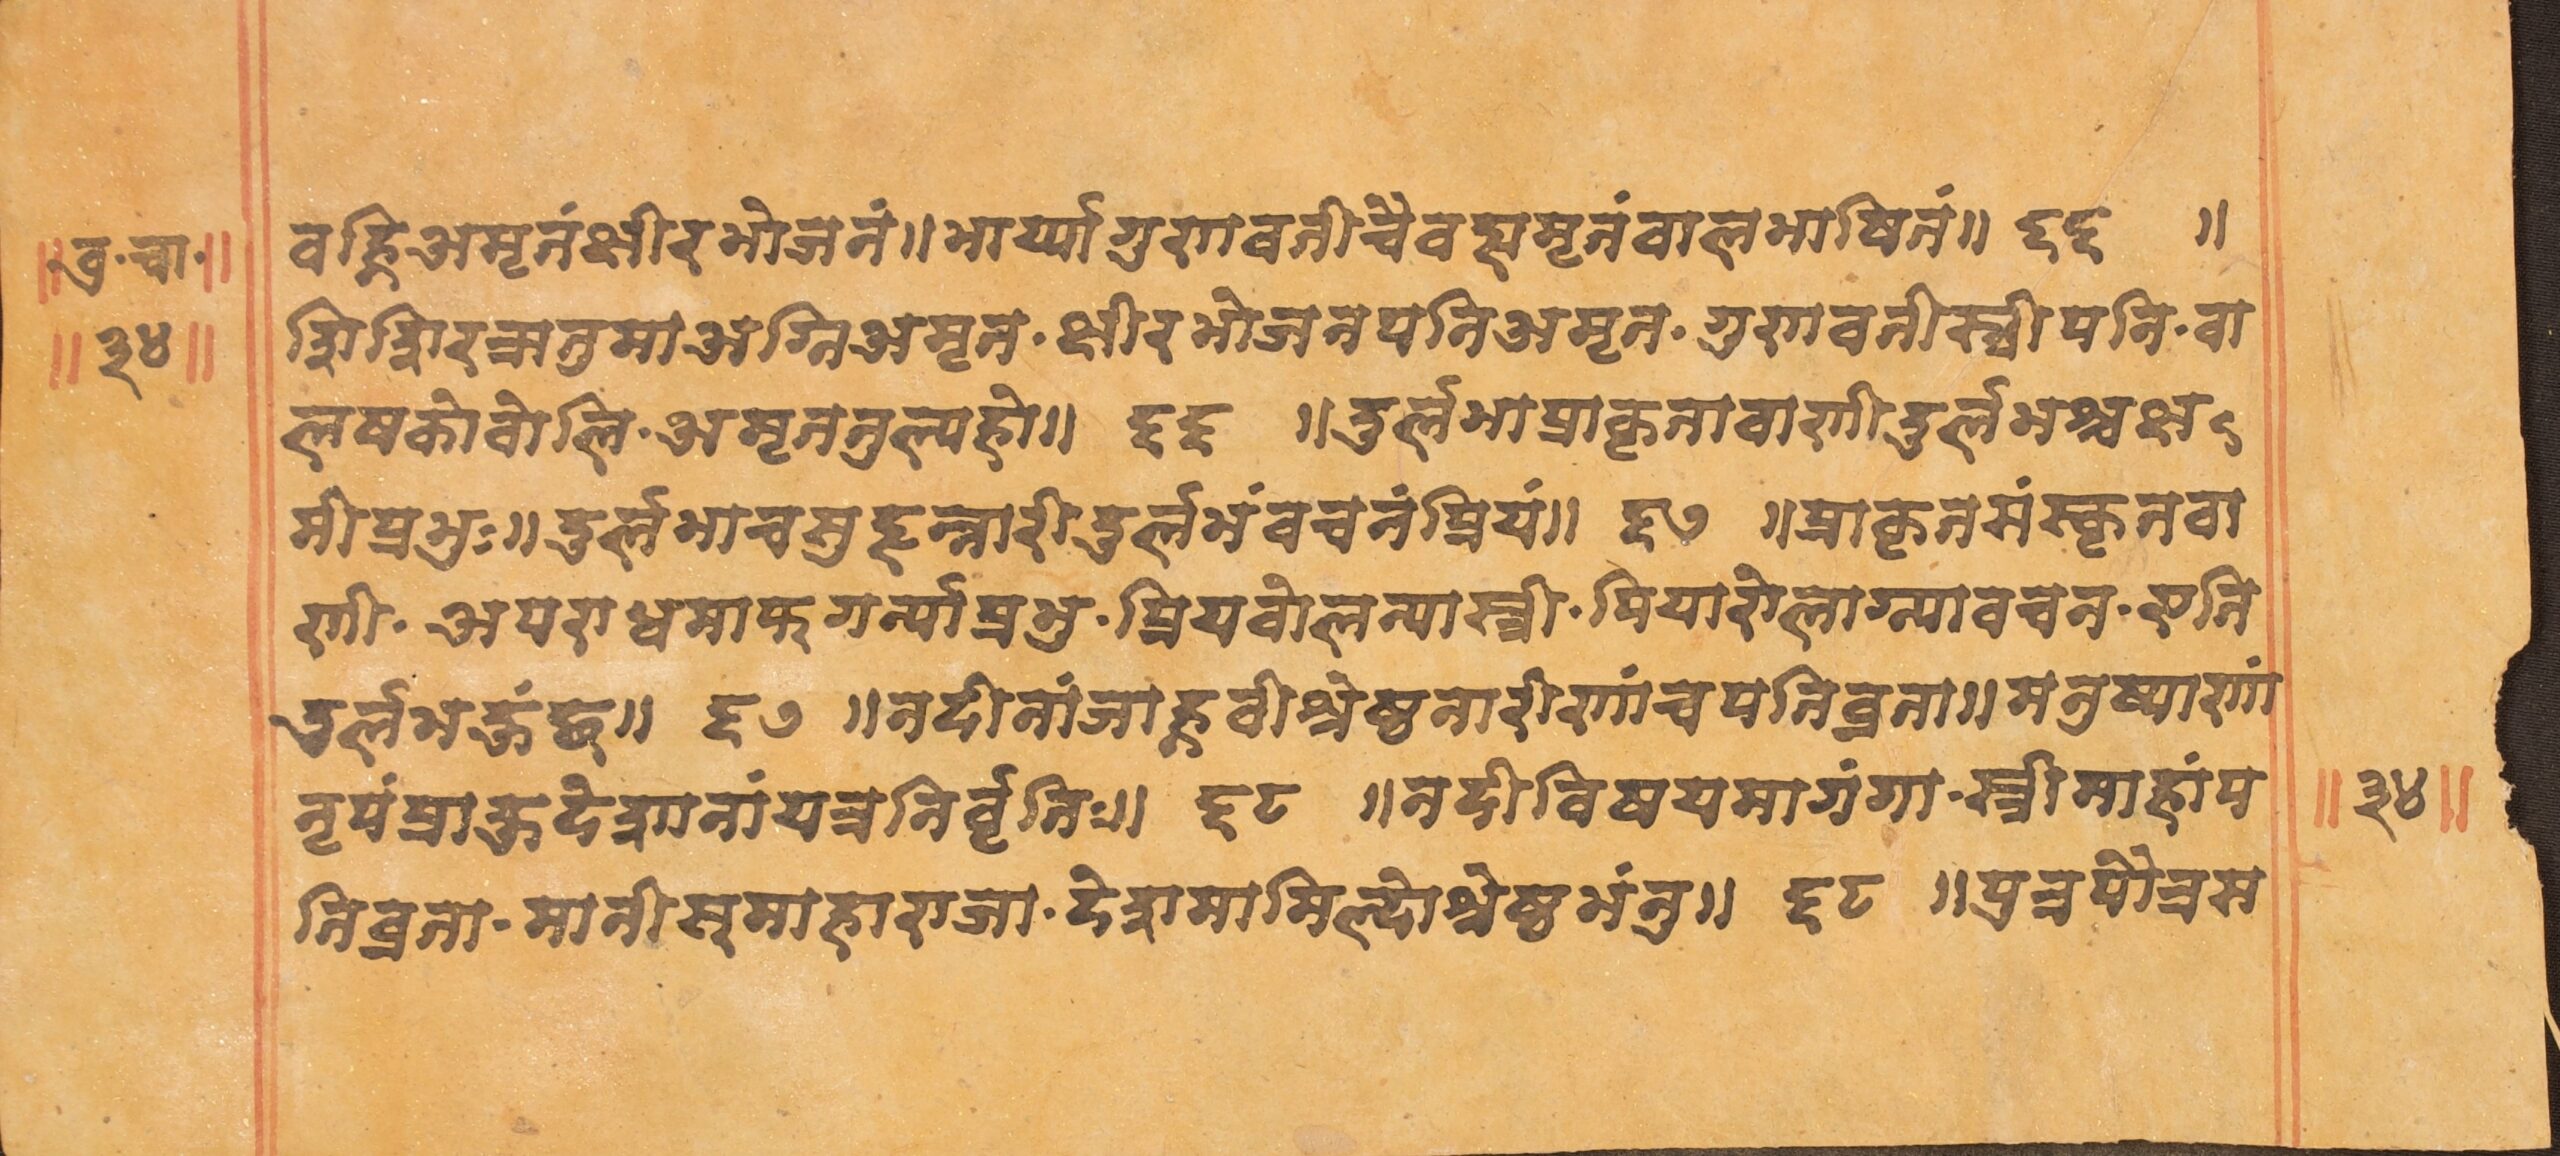 ॥वु.चा.॥
॥३४॥
वह्निअमृतंक्षीरभोजनं॥भार्य्यागुणवतीचैवह्यमृतंवालभाषितं॥ ६६ ॥
शिशिरऋतुमाअग्निअमृत.क्षीरभोजनपनिअमृत.गुणवतीस्त्रीपनि.वा
लषकोवोलि.अमृततुल्यहो॥ ६६ ॥दुर्लभाप्राकृतावाणीदुर्लभश्चक्षऽ
मीप्रभुः॥दुर्लभाचसुहृन्नारीदुर्लभंवचनंप्रियं॥ ६७ ॥प्राकृतसंस्कृतवा
णी.अपराधमाफ्गर्न्याप्रभु.प्रियवोलन्यास्त्री.पियारोलाग्न्यावचन.एति
दुर्लभछंछ॥ ६७ ॥नदीनांजाह्नवीश्रेष्ठनारीणांचपतिव्रता॥मनुष्याणां
नृपंप्राक्तदेशानांयत्रनिर्वृतिः॥ ६८ ॥नदीविषयमागंगा.स्त्रीमाहांप
तिव्रता.मानीस्माहाराजा.देशमामिल्दोश्रेष्ठभंनु॥ ६८ ॥पुत्रपौत्रस
॥३४॥